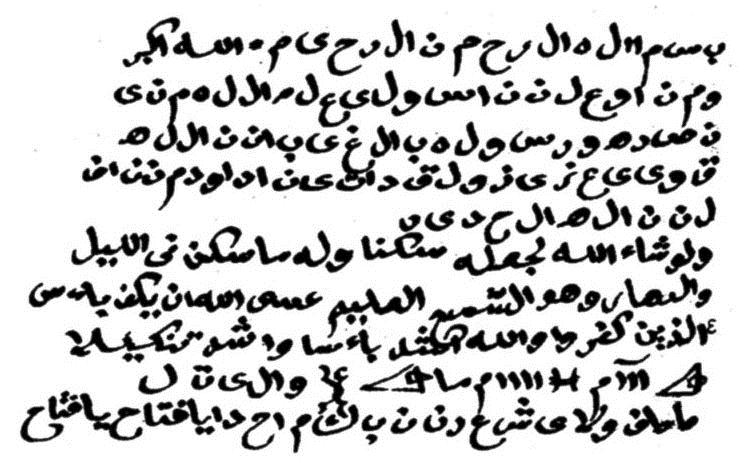 ب س م ا ل ل ه ا ل ر ح م ن ا ل ر ح ى م الله اكبر
و م ن ا و ع ل ن ن ا س و ل ى ع ل م ا ل ل ه م ن ى
ن ص ا ر ه و ر س و ل ه ب ا ل غ ى ب ا ن ن ا ل ل ه
ق و ى ى ع ز ى ز و ل ق د ا ت ى ن ا د ا و د م ن ن ا ف
ل ن ن ا ل ه ا ل ح د ى د
ولو شاء الله لجعله سكنا وله ما سكن فى الليل
والنهار وهو السميع العليم عسى الله ان يكف باءس
الذين كفروا والله اشد باءسا واشد تنكيلا
و ا ل ى ق ل
و لا ى ش ع ر ن ن ب ك م ا ح د ا يافتاح يافتاح